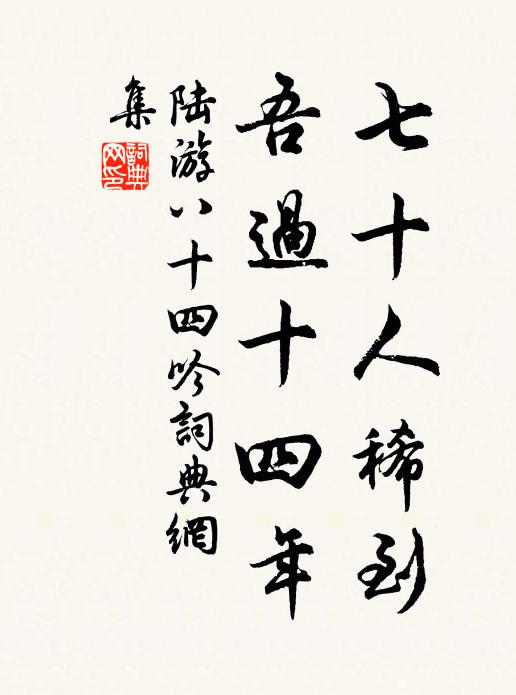 七十人稀到
吾過十四年
陆游八十四吟詞典網
集
詞典网印